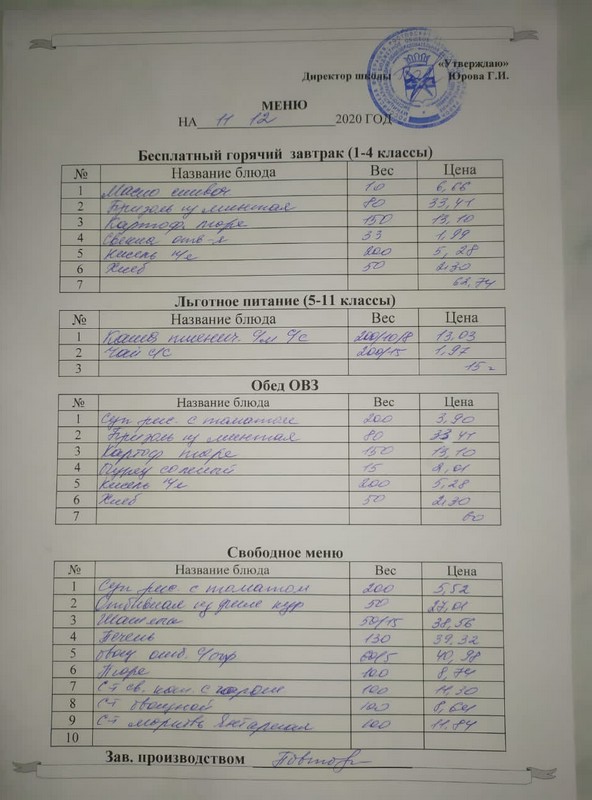 «Утверждаю»
Директор школы Юрова Г.И.
МЕНЮ
НА 11 12 2020 ГОД
Бесплатный горячий завтрак (1-4 классы)
№ Название блюда Вес Цена
1 Масло сливоч 10 6,66
2 Бризоль из минтая 80 33,41
3 Картоф. пюре 150 13,10
4 Свекла отв-я 33 1,99
5 Кисель 200 5,28
6 Хлеб 50 2,30
7 62,74
Льготное питание (5-11 классы)
№ Название блюда Вес Цена
1 Каша пшенич. 200/10/8 13,03
2 Чай с/с 200/15 1,97
3 15
Обед ОВЗ
№ Название блюда Вес Цена
1 Суп рис. с томатом 200 3,90
2 Бризоль из минтая 80 33,41
3 Картоф пюре 150 13,10
4 Огурец соленый 15 2,01
5 Кисель 200 5,28
6 Хлеб 50 2,30
7 60
Свободное меню
№ Название блюда Вес Цена
1 Суп рис. с томатом 200 5,52
2 Отбивная из филе кур 50 27,01
3 50/15 38,56
4 Печень 130 39,32
5 60/5 40,98
6 Пюре 100 8,74
7 С-т св. кап. с 100 11,30
8 С-т овощной 100
9 С-т морковь Янтарная 100 11,84
10
Зав. производством